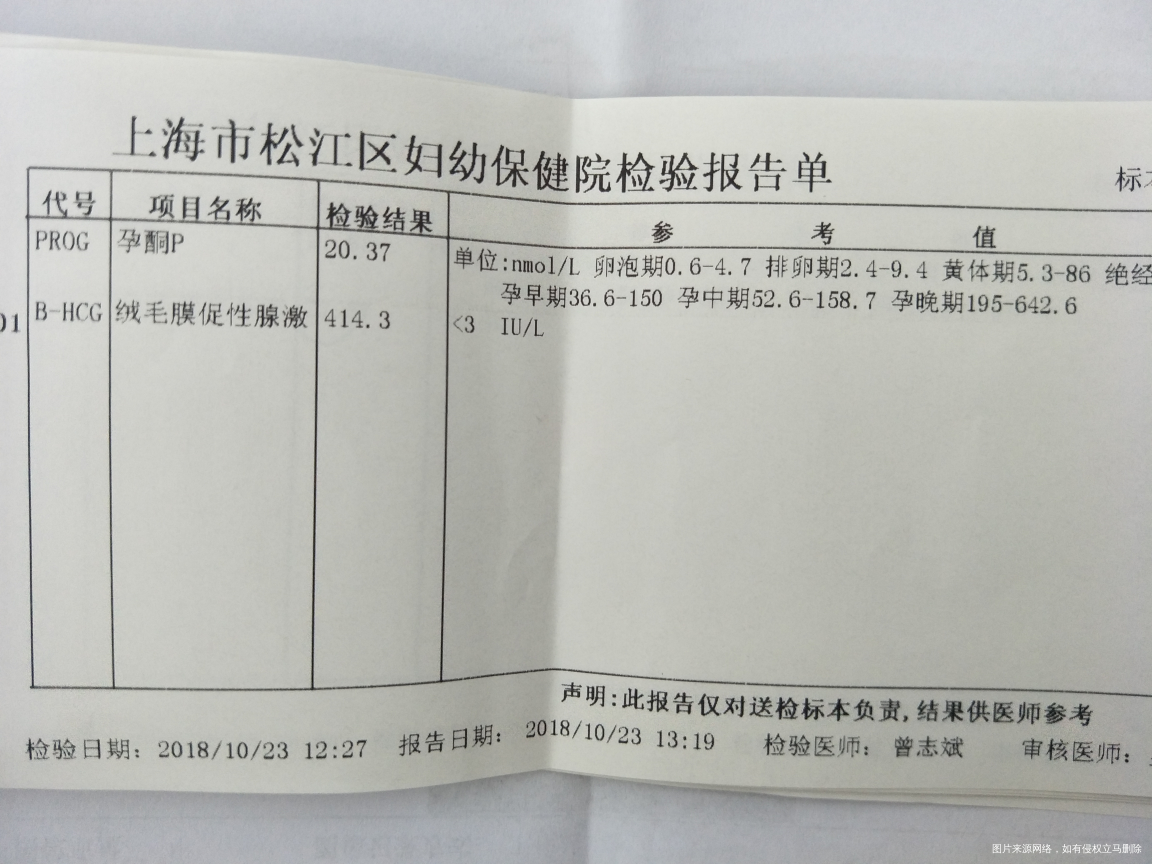 上海市松江区妇幼保健院检验报告单
代号 项目名称 检验结果 参考值
PROG 孕酮P 20.37 单位:nmol/L 卵泡期0.6-4.7 排卵期2.4-9.4 黄体期5.3-86 绝经
孕早期36.6-150 孕中期52.6-158.7 孕晚期195-642.6
01 B-HCG 绒毛膜促性腺激 414.3 <3 IU/L
声明:此报告仅对送检标本负责,结果供医师参考
检验日期: 2018/10/23 12:27 报告日期: 2018/10/23 13:19 检验医师: 曾志斌 审核医师:
图片来源网络，如有侵权立马删除